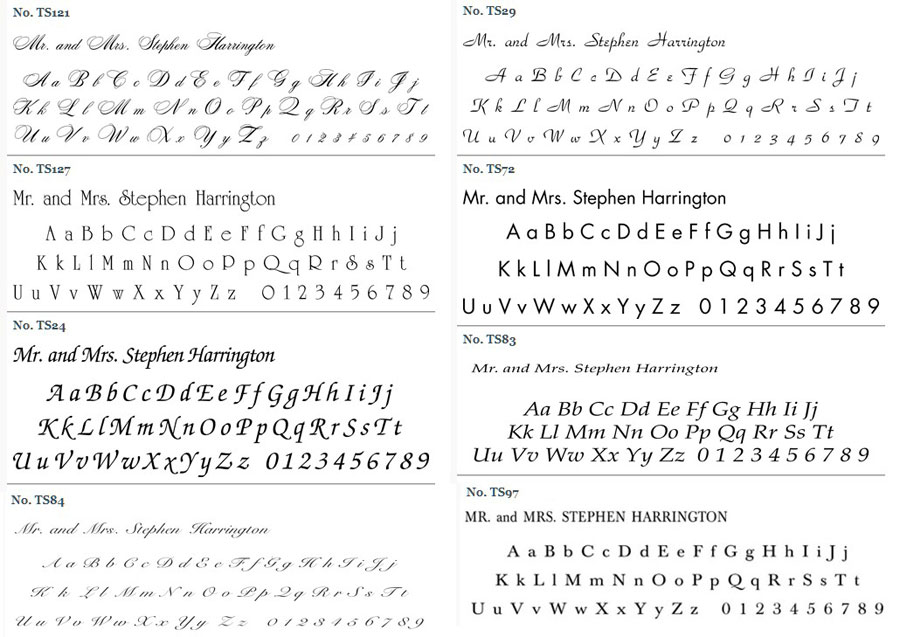 No. TS121
Mr. and Mrs. Stephen Harrington
Aa Bb Cc Dd Ee Ff Gg Hh Ii Jj
Kk Ll Mm Nn Oo Pp Qq Rr Ss Tt
Uu Vv Ww Xx Yy Zz 0 1 2 3 4 5 6 7 8 9
No. TS127
Mr. and Mrs. Stephen Harrington
A a B b C c D d E e F f G g H h I i J j
K k L l M m N n O o P p Q q R r S s T t
U u V v W w X x Y y Z z 0 1 2 3 4 5 6 7 8 9
No. TS24
Mr. and Mrs. Stephen Harrington
A a B b C c D d E e F f G g H h I i J j
K k L l M m N n O o P p Q q R r S s T t
U u V v W w X x Y y Z z 0 1 2 3 4 5 6 7 8 9
No. TS84
Mr. and Mrs. Stephen Harrington
A a B b C c D d E e F f G g H h I i J j
K k L l M m N n O o P p Q q R r S s T t
U u V v W w X x Y y Z z 0 1 2 3 4 5 6 7 8 9
No. TS29
Mr. and Mrs. Stephen Harrington
A a B b C c D d E e F f G g H h I i J j
K k L l M m N n O o P p Q q R r S s T t
U u V v W w X x Y y Z z 0 1 2 3 4 5 6 7 8 9
No. TS72
Mr. and Mrs. Stephen Harrington
A a B b C c D d E e F f G g H h I i J j
K k L l M m N n O o P p Q q R r S s T t
U u V v W w X x Y y Z z 0 1 2 3 4 5 6 7 8 9
No. TS83
Mr. and Mrs. Stephen Harrington
Aa Bb Cc Dd Ee Ff Gg Hh Ii Jj
Kk Ll Mm Nn Oo Pp Qq Rr Ss Tt
Uu Vv Ww Xx Yy Zz 0 1 2 3 4 5 6 7 8 9
No. TS97
MR. and MRS. STEPHEN HARRINGTON
A a B b C c D d E e F f G g H h I i J j
K k L l M m N n O o P p Q q R r S s T t
U u V v W w X x Y y Z z 0 1 2 3 4 5 6 7 8 9